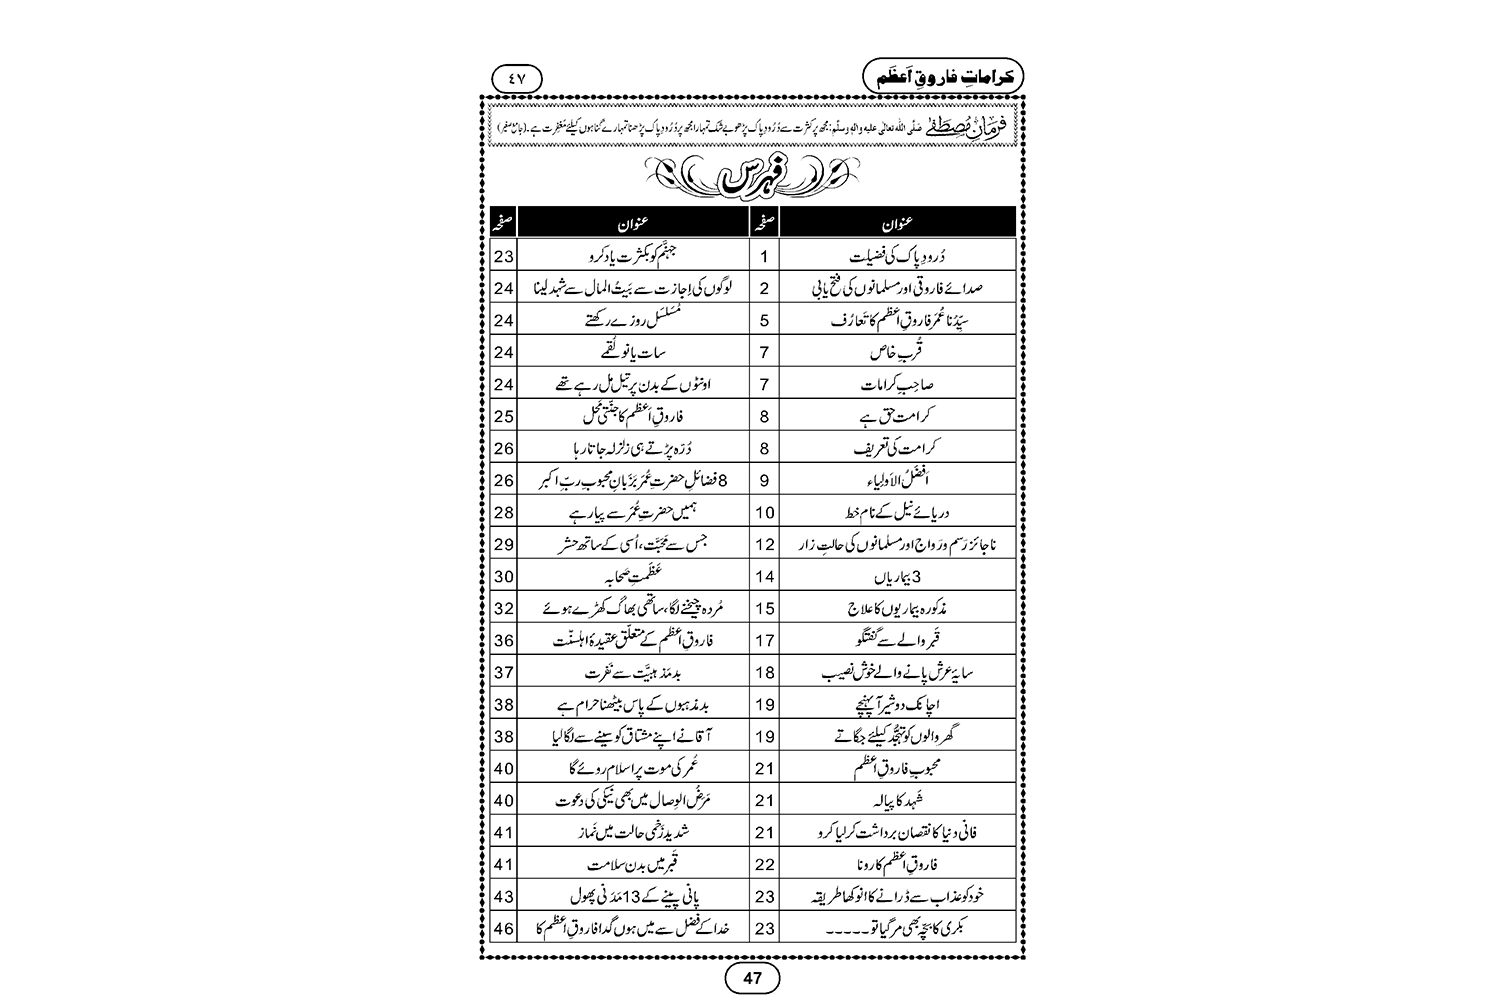 کراماتِ فاروقِ اَعظم
٤٧
فرمانِ مُصطَفٰے صَلَّی اللہ تعالیٰ علیہ والہٖ وسلّم: مجھ پر کثرت سے دُرُودِ پاک پڑھو بے شک تمہارا مجھ پر دُرُودِ پاک پڑھنا تمہارے گناہوں کیلئے مَغفِرت ہے۔ (جامع صغیر)
فہرس
عنوان صفحہ عنوان صفحہ
دُرودِ پاک کی فضیلت 1 جہنَّم کو بکثرت یاد کرو 23
صدائے فاروقی اور مسلمانوں کی فتح یابی 2 لوگوں کی اِجازت سے بَیتُ المال سے شہد لینا 24
سیِّدُنا عُمَر فاروقِ اَعظم کا تَعارُف 5 مُسَلسَل روزے رکھتے 24
قُربِ خاص 7 سات یا نو لُقمے 24
صاحبِ کرامات 7 اونٹوں کے بدن پر تیل مل رہے تھے 24
کرامت حق ہے 8 فاروقِ اَعظم کا جنّتی مَحَل 25
کرامت کی تعریف 8 دُرّہ پڑتے ہی زلزلہ جاتا رہا 26
اَفضَلُ الاَولِیاء 9 8 فضائلِ حضرتِ عُمَر بَزَبانِ محبوبِ ربِّ اکبر 26
دریائے نیل کے نام خط 10 ہمیں حضرتِ عُمَر سے پیار ہے 28
ناجائز رَسم ورَواج اور مسلمانوں کی حالتِ زار 12 جس سے مَحَبَّت، اُسی کے ساتھ حشر 29
3 بیماریاں 14 عَظَمتِ صَحابہ 30
مذکورہ بیماریوں کا علاج 15 مُردہ چیخنے لگا، ساتھی بھاگ کھڑے ہوئے 32
قَبر والے سے گفتگو 17 فاروقِ اعظم کے متعلّق عقیدۂ اہلسنّت 36
سایۂ عرش پانے والے خوش نصیب 18 بدمَذہبیَّت سے نَفرت 37
اچانک دو شیر آ پہنچے 19 بدمذہبوں کے پاس بیٹھنا حرام ہے 38
گھر والوں کو تہجُّد کیلئے جگاتے 19 آقا نے اپنے مشتاق کو سینے سے لگا لیا 38
محبوبِ فاروقِ اَعظم 21 عُمر کی موت پر اسلام روئے گا 40
شَہد کا پیالہ 21 مَرَضُ الوِصال میں بھی نیکی کی دعوت 40
فانی دنیا کا نقصان برداشت کر لیا کرو 21 شدید زَخمی حالت میں نَماز 41
فاروقِ اعظم کا رونا 22 قَبر میں بدن سلامت 41
خود کو عذاب سے ڈرانے کا انوکھا طریقہ 23 پانی پینے کے 13 مَدَنی پھول 43
بکری کا بچّہ بھی مرگیا تو۔۔۔۔۔ 23 خدا کے فضل سے میں ہوں گدا فاروقِ اعظم کا 46
47